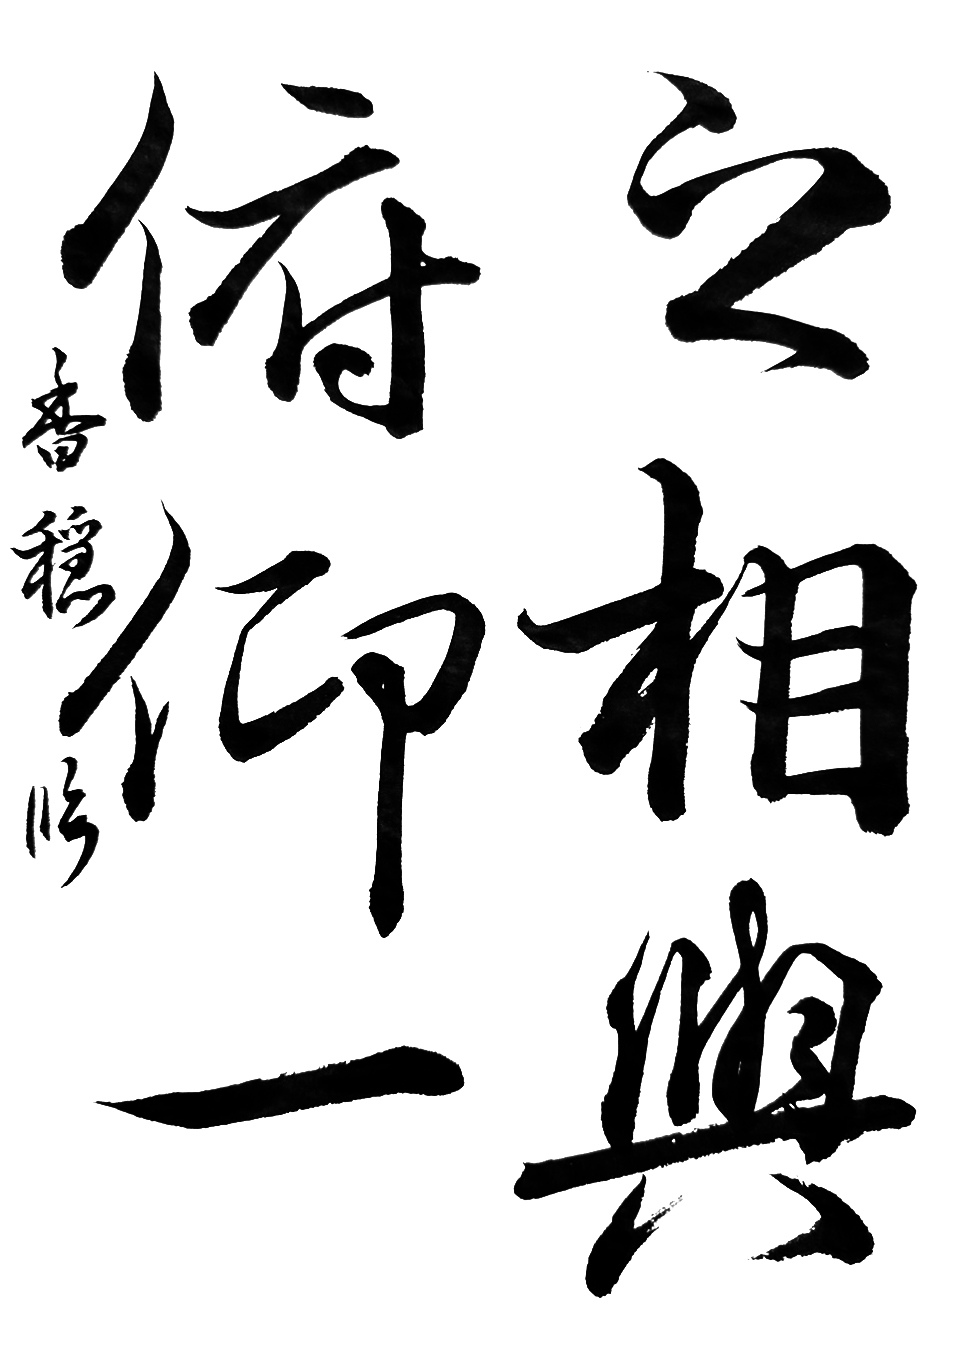 之相與
俯仰一
香穏臨